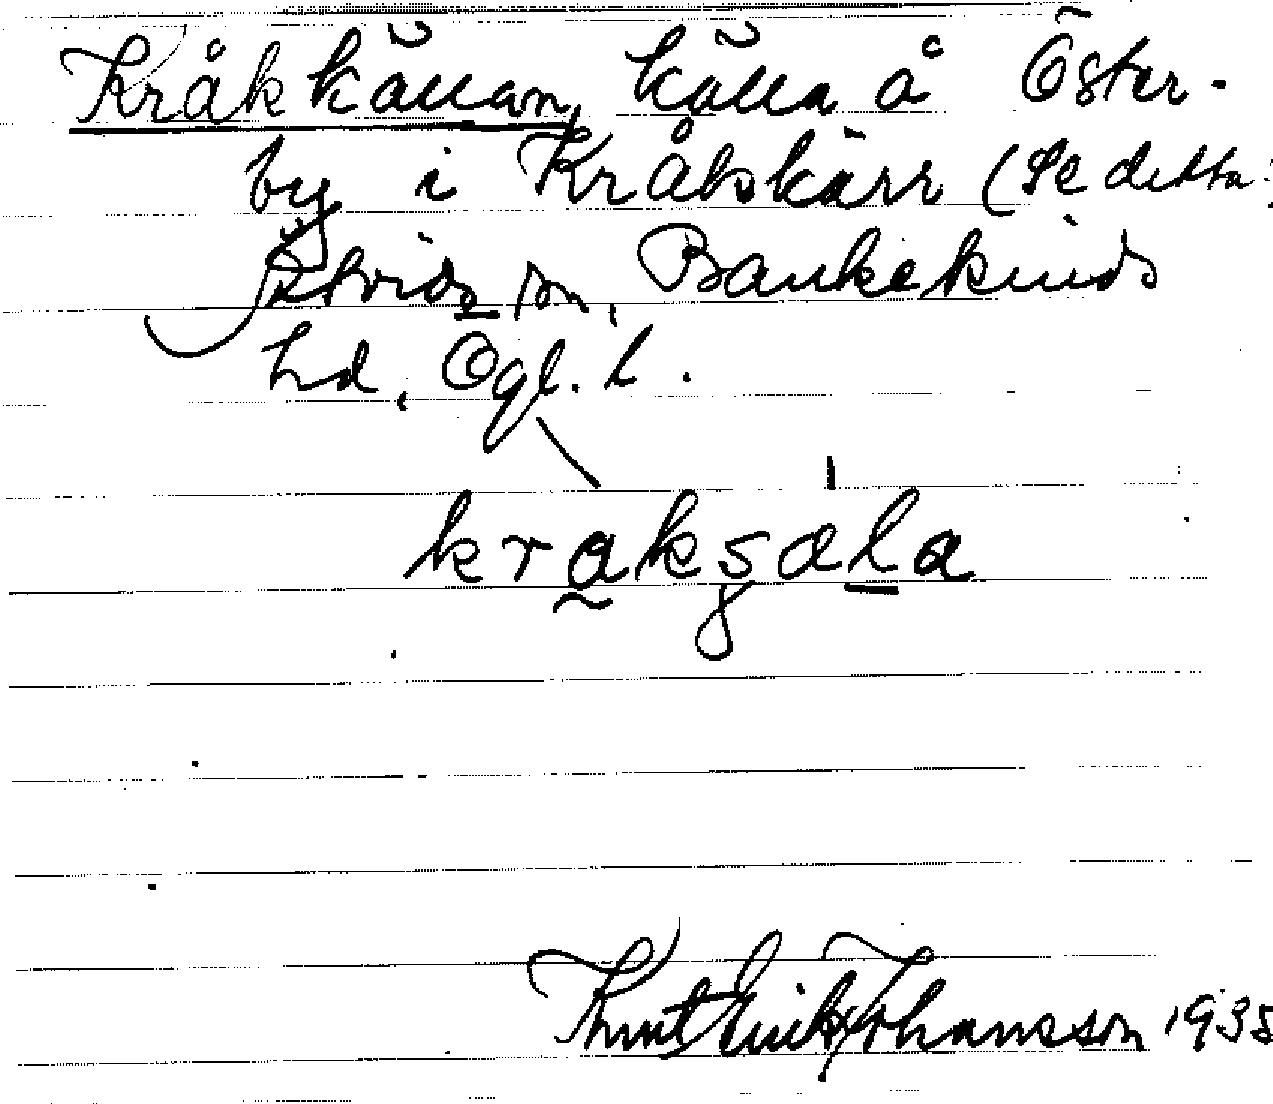 Kråkkällan, källa å Öster-
by i Kråkskärr (Se detta!
Åtvids sn, Bankekinds
hd, Ögl. l.
kraksäla
Knut Erik Johansson 1935